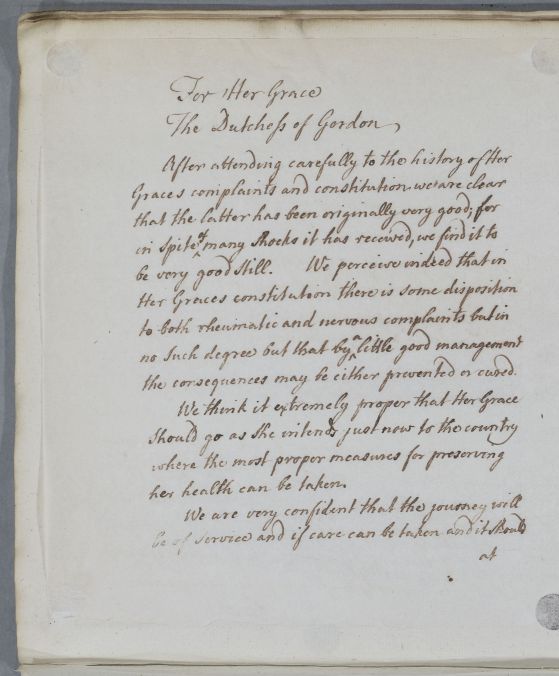 For Her Grace
The Dutchess of Gordon,
After attending carefully to the history of Her
Graces complaints and constitution we are clear
that the latter has been originally very good; for
in spite of many shocks it has received, we find it to
be very good still. We perceive indeed that in
Her Graces constitution there is some disposition
to both rheumatic and nervous complaints but in
no such degree but that by a little good management
the consequences may be either prevented or cured.
We think it extremely proper that Her Grace
should go as she intends just now to the country
where the most proper measures for preserving
her health can be taken.
We are very confident that the journey will
be of service and if care can be taken and it should
at